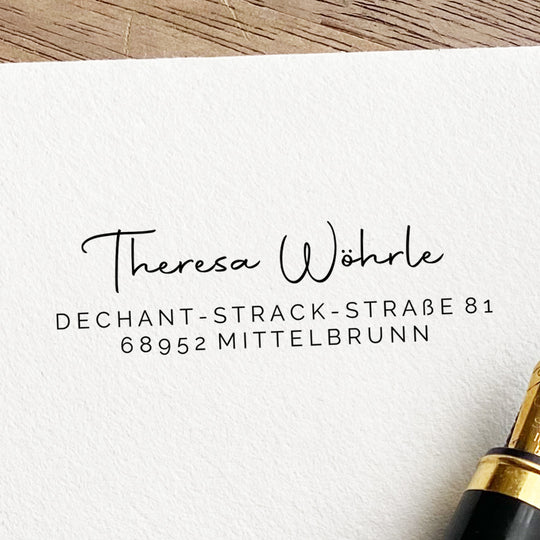 Theresa Wöhrle
DECHANT-STRACK-STRAßE 81
68952 MITTELBRUNN